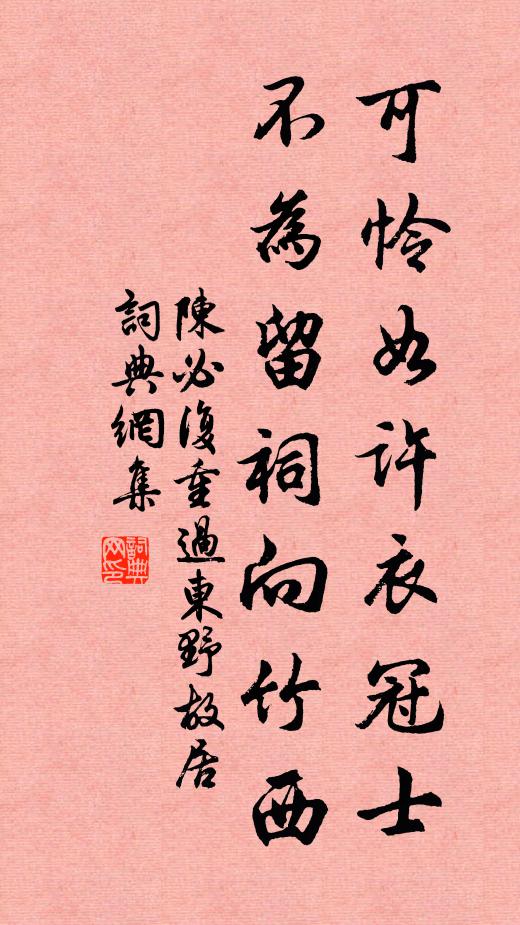 可怜如許衣冠士
不為留祠向竹西
陳必復重過東野故居
詞典網集
詞典网印